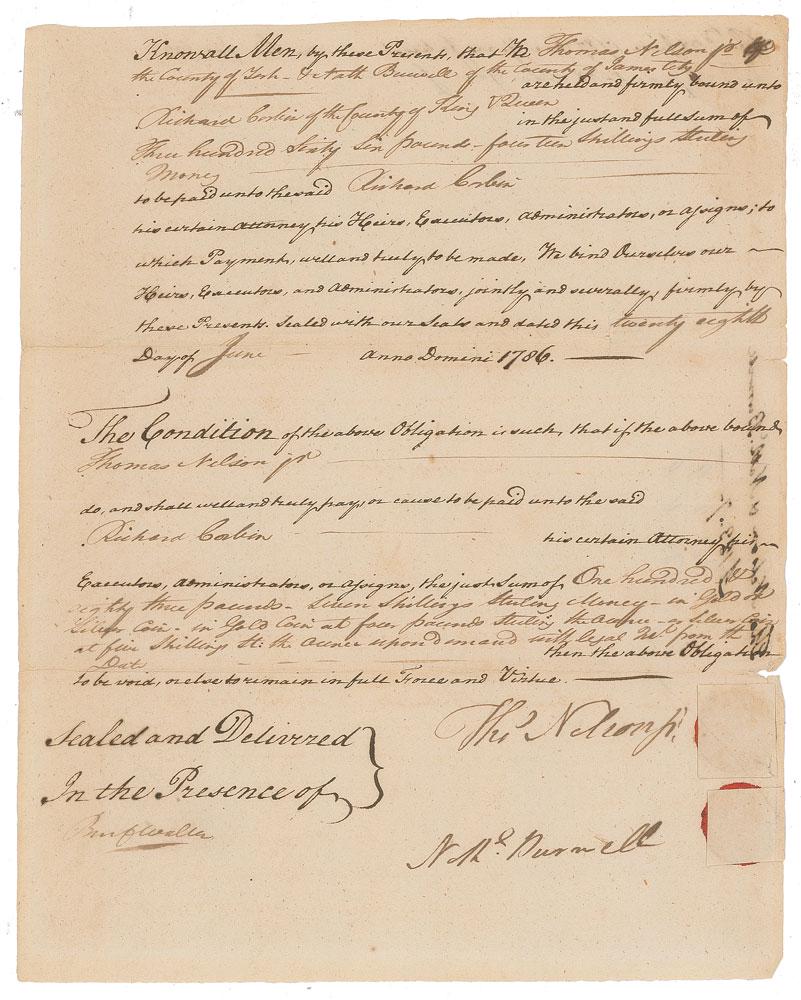 Know all Men, by these Presents, that We Thomas Nelson jr of
the County of York - & Nath Burwell of the County of James City
are held and firmly bound unto
Richard Corbin of the County of King & Queen
in the just and full sum of
Three hundred Sixty Six pounds - fourteen Shillings sterling
Money
to be paid unto the said Richard Corbin
his certain Attorney, his Heirs, Executors, Administrators, or Assigns; to
which Payment, well and truly to be made, We bind Ourselves our
Heirs, Executors, and Administrators, jointly and severally, firmly by
these Presents. Sealed with our Seals and dated this twenty eighth
Day of June Anno Domini 1786.
The Condition of the above Obligation is such, that if the above bound
Thomas Nelson jr
do, and shall well and truly pay, or cause to be paid unto the said
Richard Corbin
his certain Attorney, his
Executors, Administrators, or Assigns, the just Sum of One hundred &
eighty three pounds - Seven Shillings Sterling Money - in Gold or
Silver Coin - in Gold Coin at four pounds Sterling the Ounce - or Silver Coin
at five Shillings St: the Ounce upon demand with legal Int. from the
Date then the above Obligation
to be void, or else to remain in full Force and Virtue.
Sealed and Delivered
In the Presence of
Thos Nelson jr.
Ben C Waller
Nath. Burwell